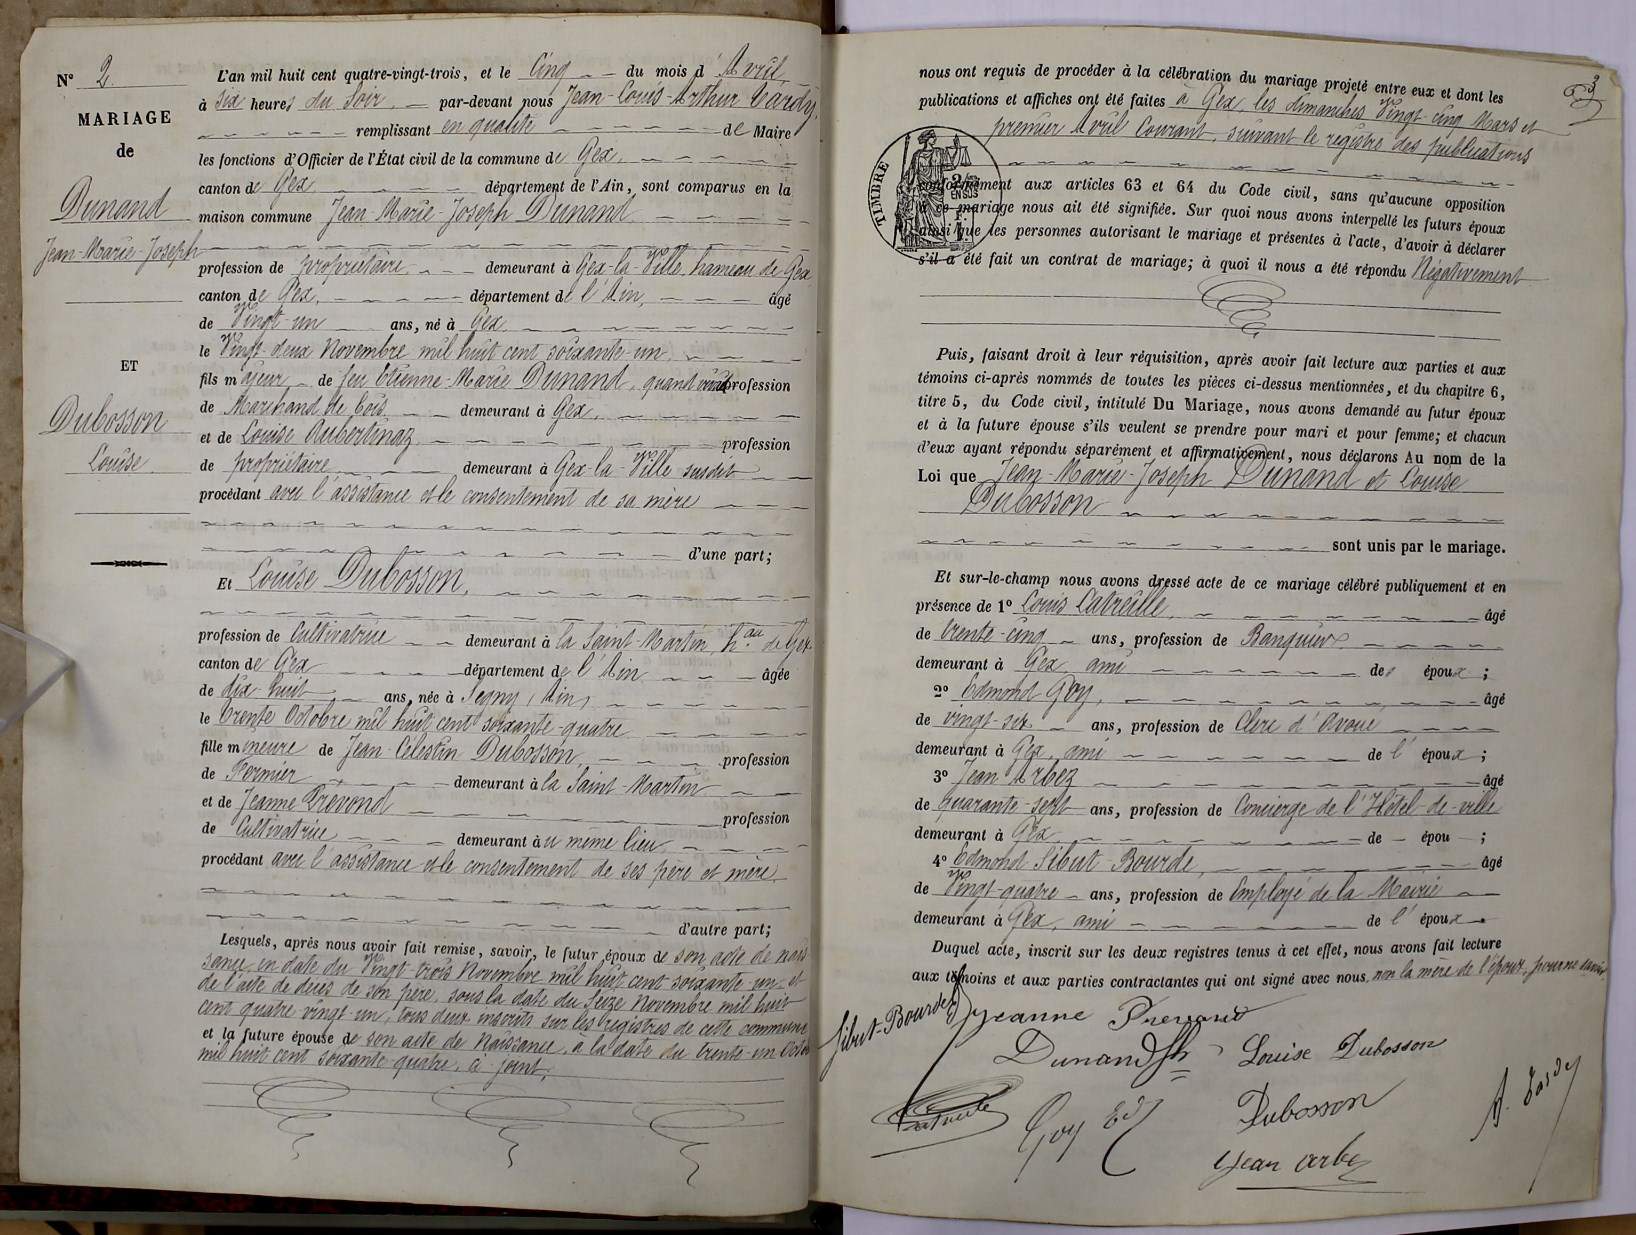 N° 2.
MARIAGE
de
Dunand
Jean-Marie-Joseph
ET
Dubosson
Louise
L'an mil huit cent quatre-vingt-trois, et le Cinq du mois d'Avril,
à six heures du soir, par-devant nous Jean-Louis-Arthur Tardy,
remplissant en qualité de Maire
les fonctions d'Officier de l'État civil de la commune de Gex,
canton de Gex département de l'Ain, sont comparus en la
maison commune Jean-Marie-Joseph Dunand
profession de propriétaire demeurant à Gex-la-Ville, hameau de Gex
canton de Gex, département de l'Ain, âgé
de Vingt-un ans, né à Gex
le Vingt-deux Novembre mil huit cent soixante-un
fils majeur de feu Etienne-Marie Dunand, quand vivait profession
de Marchand de bois demeurant à Gex,
et de Louise Aubertinaz profession
de propriétaire demeurant à Gex-la-Ville susdit
procédant avec l'assistance et le consentement de sa mère
d'une part;
Et Louise Dubosson,
profession de Cultivatrice demeurant à la Saint-Martin h.au de Gex
canton de Gex département de l'Ain âgée
de dix huit ans, née à Segny, (Ain)
le trente Octobre mil huit cent soixante-quatre
fille mineure de Jean-Célestin Dubosson, profession
de Fermier demeurant à la Saint-Martin
et de Jeanne Prévond profession
de Cultivatrice demeurant au même lieu
procédant avec l'assistance et le consentement de ses père et mère
d'autre part;
Lesquels, après nous avoir fait remise, savoir, le futur époux de son acte de nais
sance, en date du Vingt-trois Novembre mil huit cent soixante-un, et
de l'acte de décès de son père, sous la date du Seize Novembre mil huit
cent quatre vingt-un, tous deux inscrits sur les registres de cette commune
et la future épouse de son acte de Naissance, à la date du trente-un Octobre
mil huit cent soixante-quatre, ci-joint,
3
nous ont requis de procéder à la célébration du mariage projeté entre eux et dont les
publications et affiches ont été faites à Gex les dimanches Vingt-cinq Mars et
premier Avril Courant, suivant le registre des publications
TIMBRE
conformément aux articles 63 et 64 du Code civil, sans qu'aucune opposition
à ce mariage nous ait été signifiée. Sur quoi nous avons interpellé les futurs époux
ainsi que les personnes autorisant le mariage et présentes à l'acte, d'avoir à déclarer
s'il a été fait un contrat de mariage; à quoi il nous a été répondu Négativement
Puis, faisant droit à leur réquisition, après avoir fait lecture aux parties et aux
témoins ci-après nommés de toutes les pièces ci-dessus mentionnées, et du chapitre 6,
titre 5, du Code civil, intitulé Du Mariage, nous avons demandé au futur époux
et à la future épouse s'ils veulent se prendre pour mari et pour femme; et chacun
d'eux ayant répondu séparément et affirmativement, nous déclarons Au nom de la
Loi que Jean-Marie-Joseph Dunand et Louise
Dubosson
sont unis par le mariage.
Et sur-le-champ nous avons dressé acte de ce mariage célébré publiquement et en
présence de 1° Louis Latreille, âgé
de trente-cinq ans, profession de Banquier
demeurant à Gex ami des époux;
2° Edmond Goy, âgé
de vingt-six ans, profession de Clerc d'avoué
demeurant à Gex, ami de l'époux;
3° Jean Arbez âgé
de quarante-sept ans, profession de Concierge de l'Hôtel-de-ville
demeurant à Gex de épou ;
4° Edmond Sibut-Bourde, âgé
de Vingt-quatre ans, profession de Employé de la Mairie
demeurant à Gex, ami de l'époux.
Duquel acte, inscrit sur les deux registres tenus à cet effet, nous avons fait lecture
aux témoins et aux parties contractantes qui ont signé avec nous, non la mère de l'époux, pour ne savoir.
Sibut-Bourde Jeanne Prevond
Dunand Jh Louise Dubosson
Latreille Goy Ed Dubosson A. Tardy
Jean Arbez